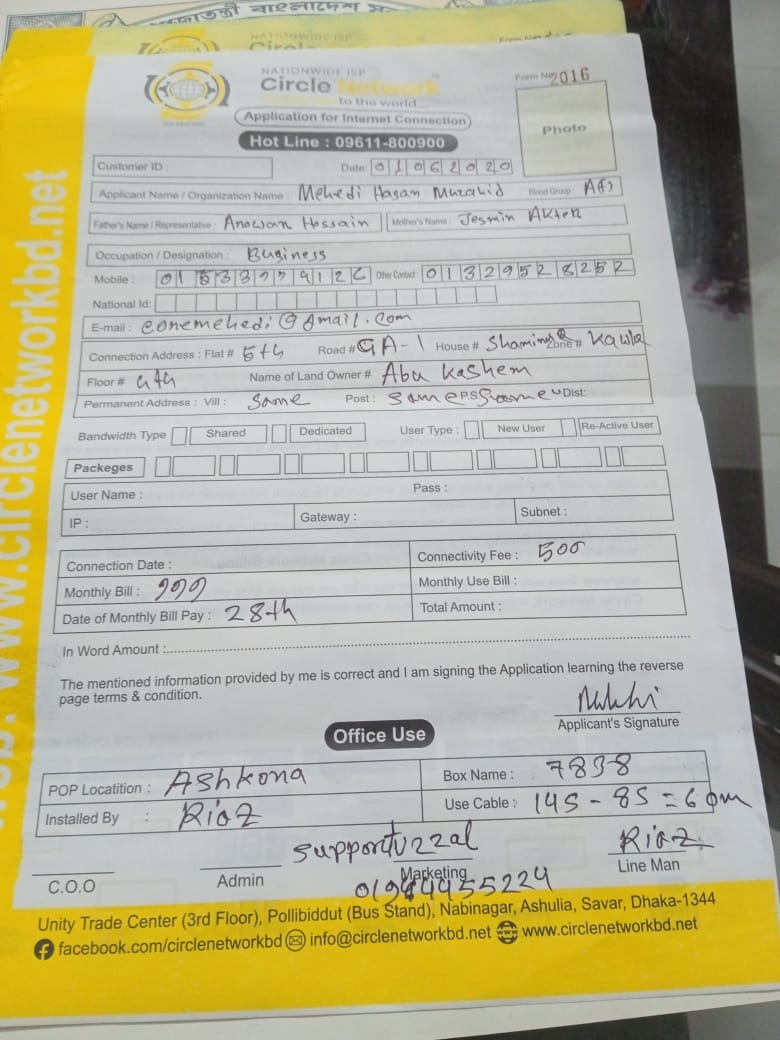 NATIONWIDE ISP
NATIONWIDE ISP
Circle Network
to the world
Form No 2016
Application for Internet Connection
Hot Line : 09611-800900
Photo
Customer ID :
Date: 01062020
Applicant Name / Organization Name : Mehedi Hasan Blood Group : A(+)
Father's Name / Representative : Anowar Hossain Mother's Name : Jesmin Akter
Occupation / Designation : Business
Mobile : Other Contact : 01329528252
National Id:
E-mail : eonemehedi@gmail.com
Connection Address : Flat # 5th Road # GA-1 House # Zone # Kawla
Floor # 4th Name of Land Owner # Abu Kashem
Permanent Address : Vill : Same Post : Same P.S Same Dist:
Bandwidth Type Shared Dedicated User Type : New User Re-Active User
Packeges
User Name : Pass :
IP : Gateway : Subnet :
Connection Date : Connectivity Fee : 500
Monthly Bill : 999 Monthly Use Bill :
Date of Monthly Bill Pay : 28th Total Amount :
In Word Amount :
The mentioned information provided by me is correct and I am signing the Application learning the reverse
page terms & condition.
Applicant's Signature
Office Use
POP Locatition : Ashkona Box Name : 7898
Installed By : Riaz Use Cable : 145 - 85 = 60m
support uzzal Riaz
C.O.O Admin Marketing Line Man
Unity Trade Center (3rd Floor), Pollibiddut (Bus Stand), Nabinagar, Ashulia, Savar, Dhaka-1344
facebook.com/circlenetworkbd info@circlenetworkbd.net www.circlenetworkbd.net
www.circlenetworkbd.net